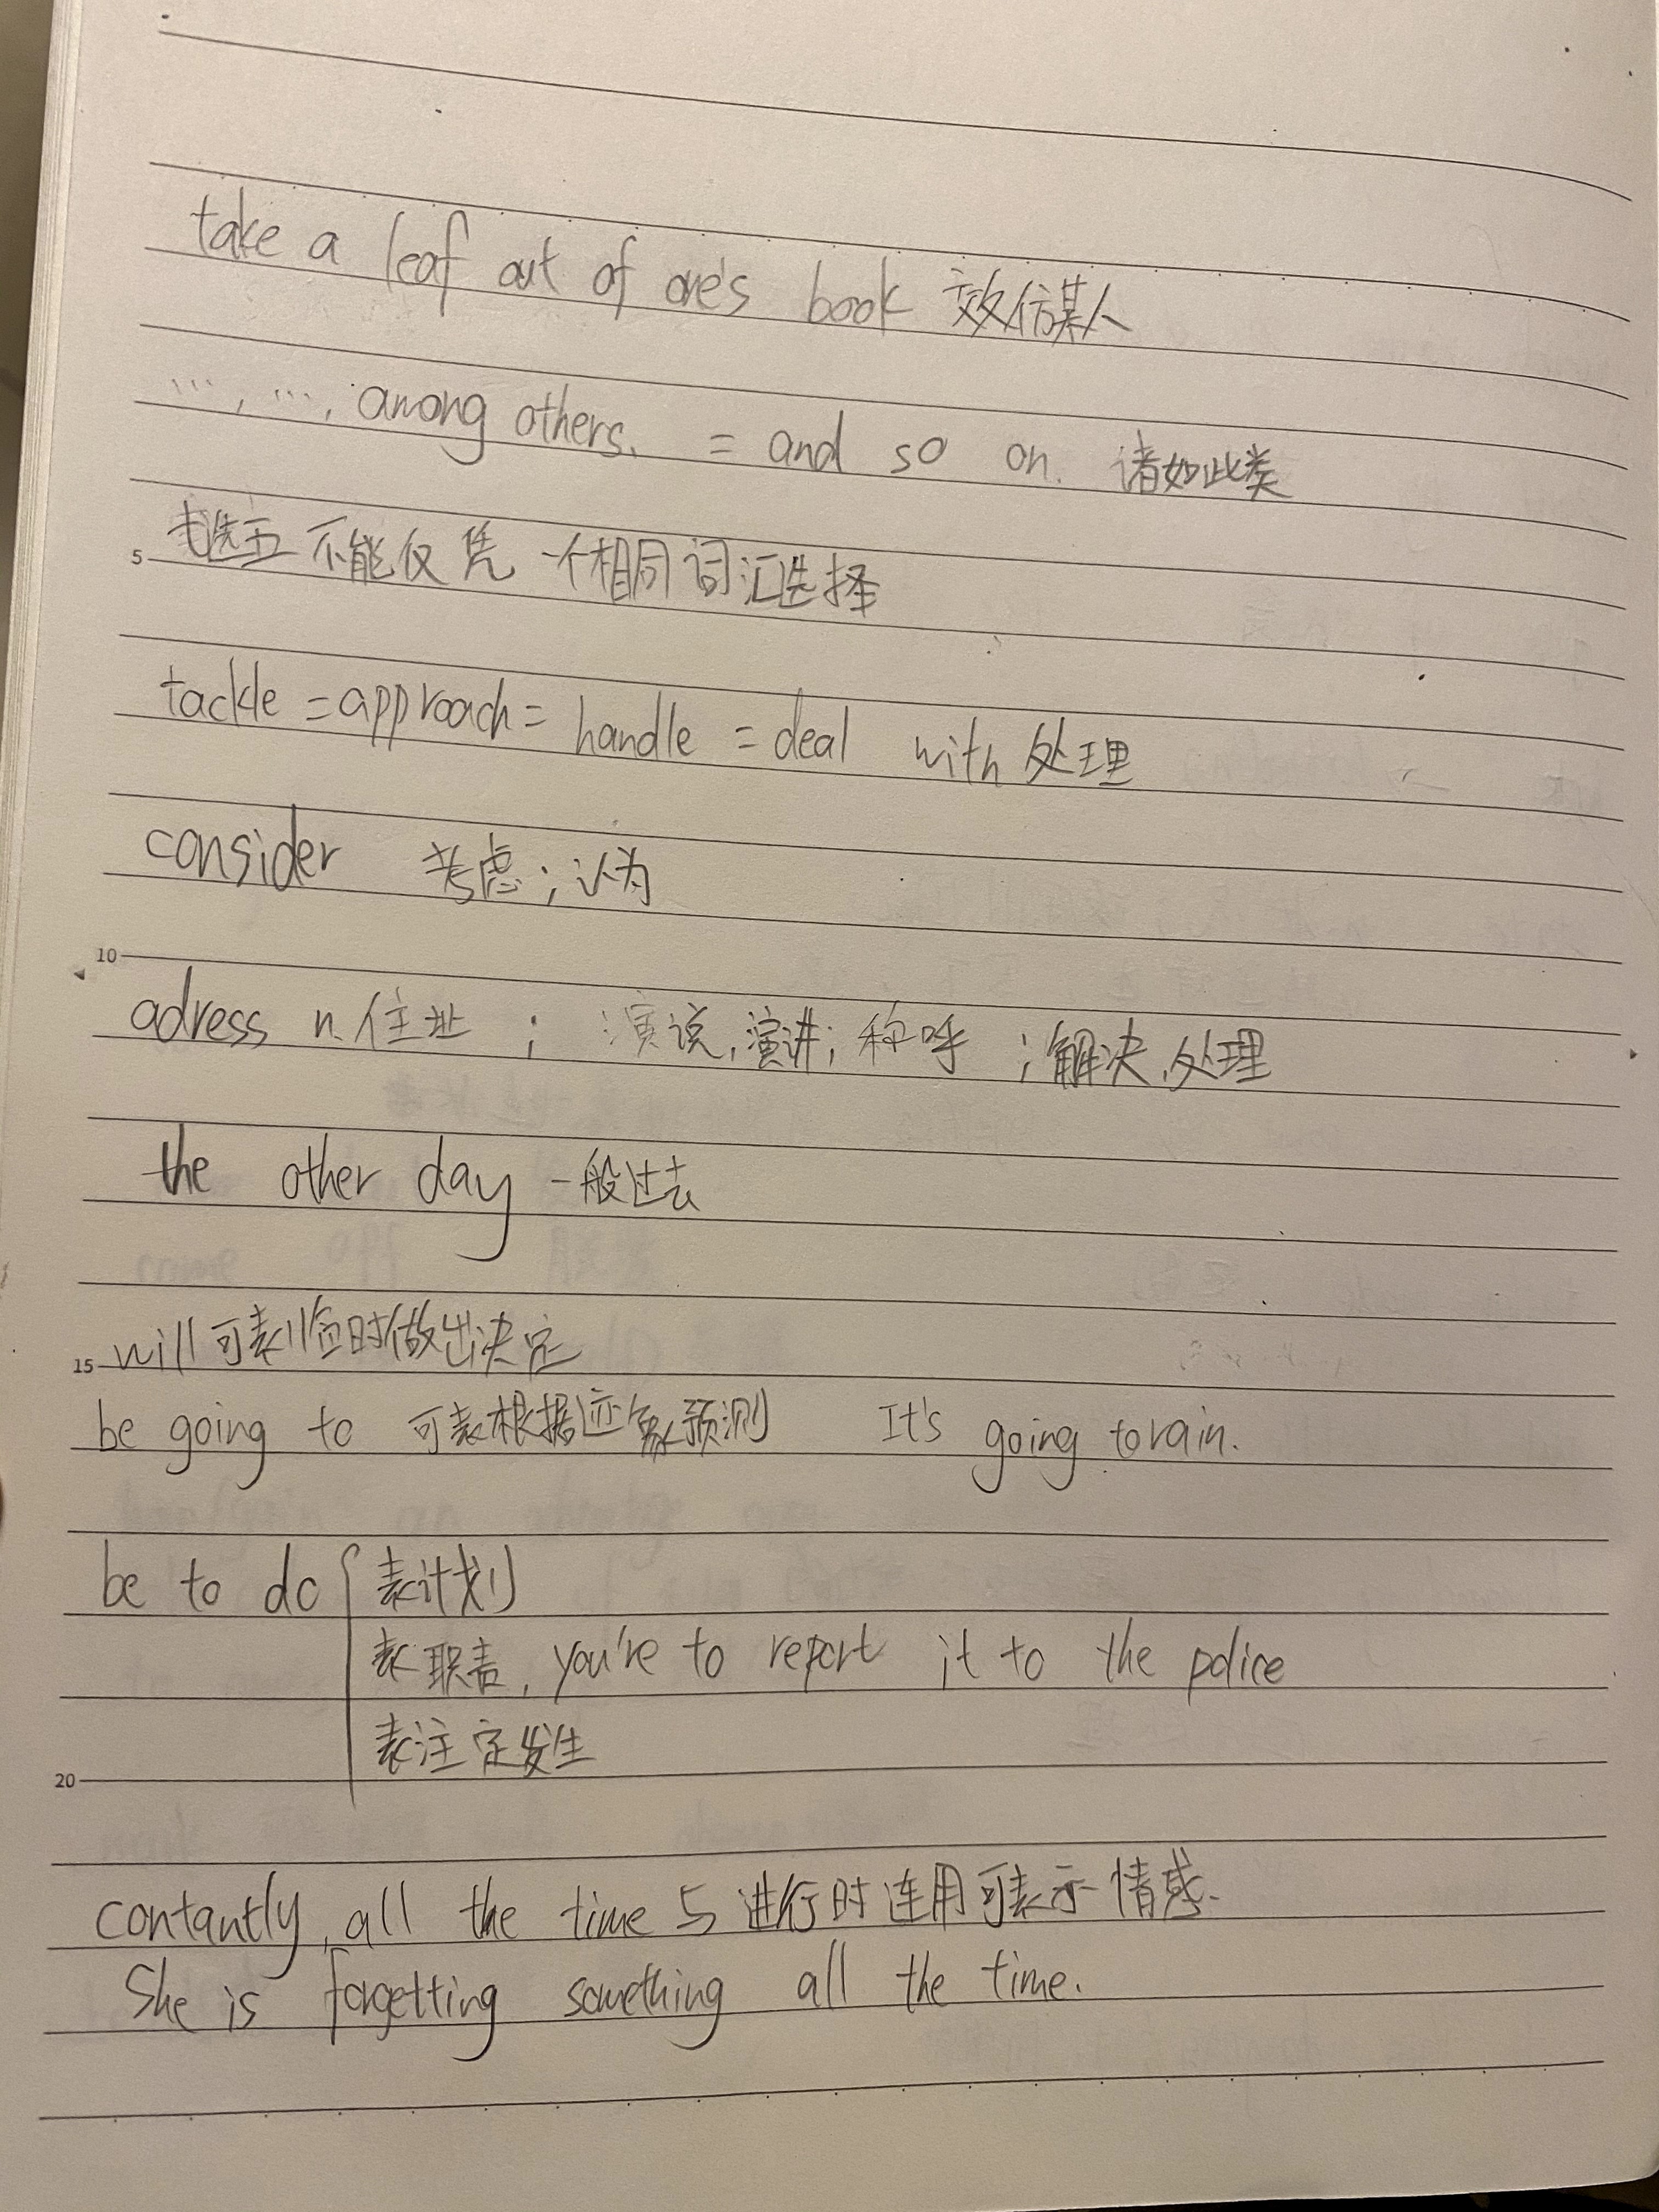 take a leaf out of one's book 效仿某人
…, …, among others. = and so on. 诸如此类
5 找空不能仅凭一个相同词汇选择
tackle = approach = handle = deal with 处理
consider 考虑；认为
10 adress n. 住址 ; 演说, 演讲; 称呼 ; 解决, 处理
the other day 一般过去
15 will 可表临时做出决定
be going to 可表根据迹象预测 It's going to rain.
be to do { 表计划
表职责, you're to report it to the police
20 表注定发生
contantly, all the time 与进行时连用可表示情感.
She is forgetting something all the time.